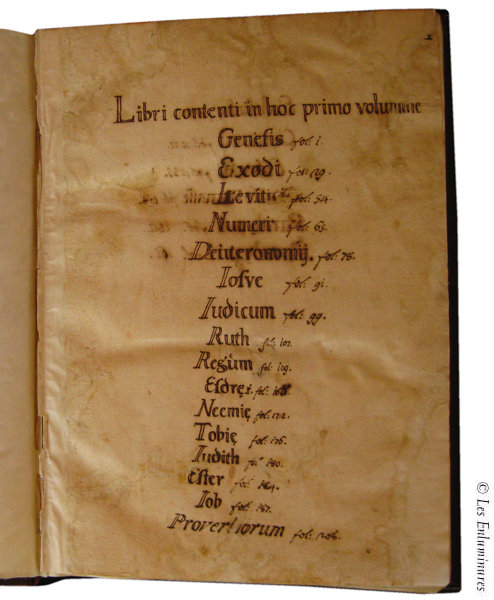 Libri contenti in hoc primo volumine
Genesis fol. 1.
Exodi fol: 29.
Levitici fol: 54.
Numeri fol. 63.
Deuteronomij. fol: 78.
Iosve fol: 91.
Iudicum fol: 99.
Ruth fol: 107.
Regum fol: 109.
Esdrę. fol:
Neemię fol: 172.
Tobię fol: 176.
Iudith fol 180.
Ester fol: 184.
Iob fol: 187.
Proverbiorum fol: 208.
© Les Enluminures